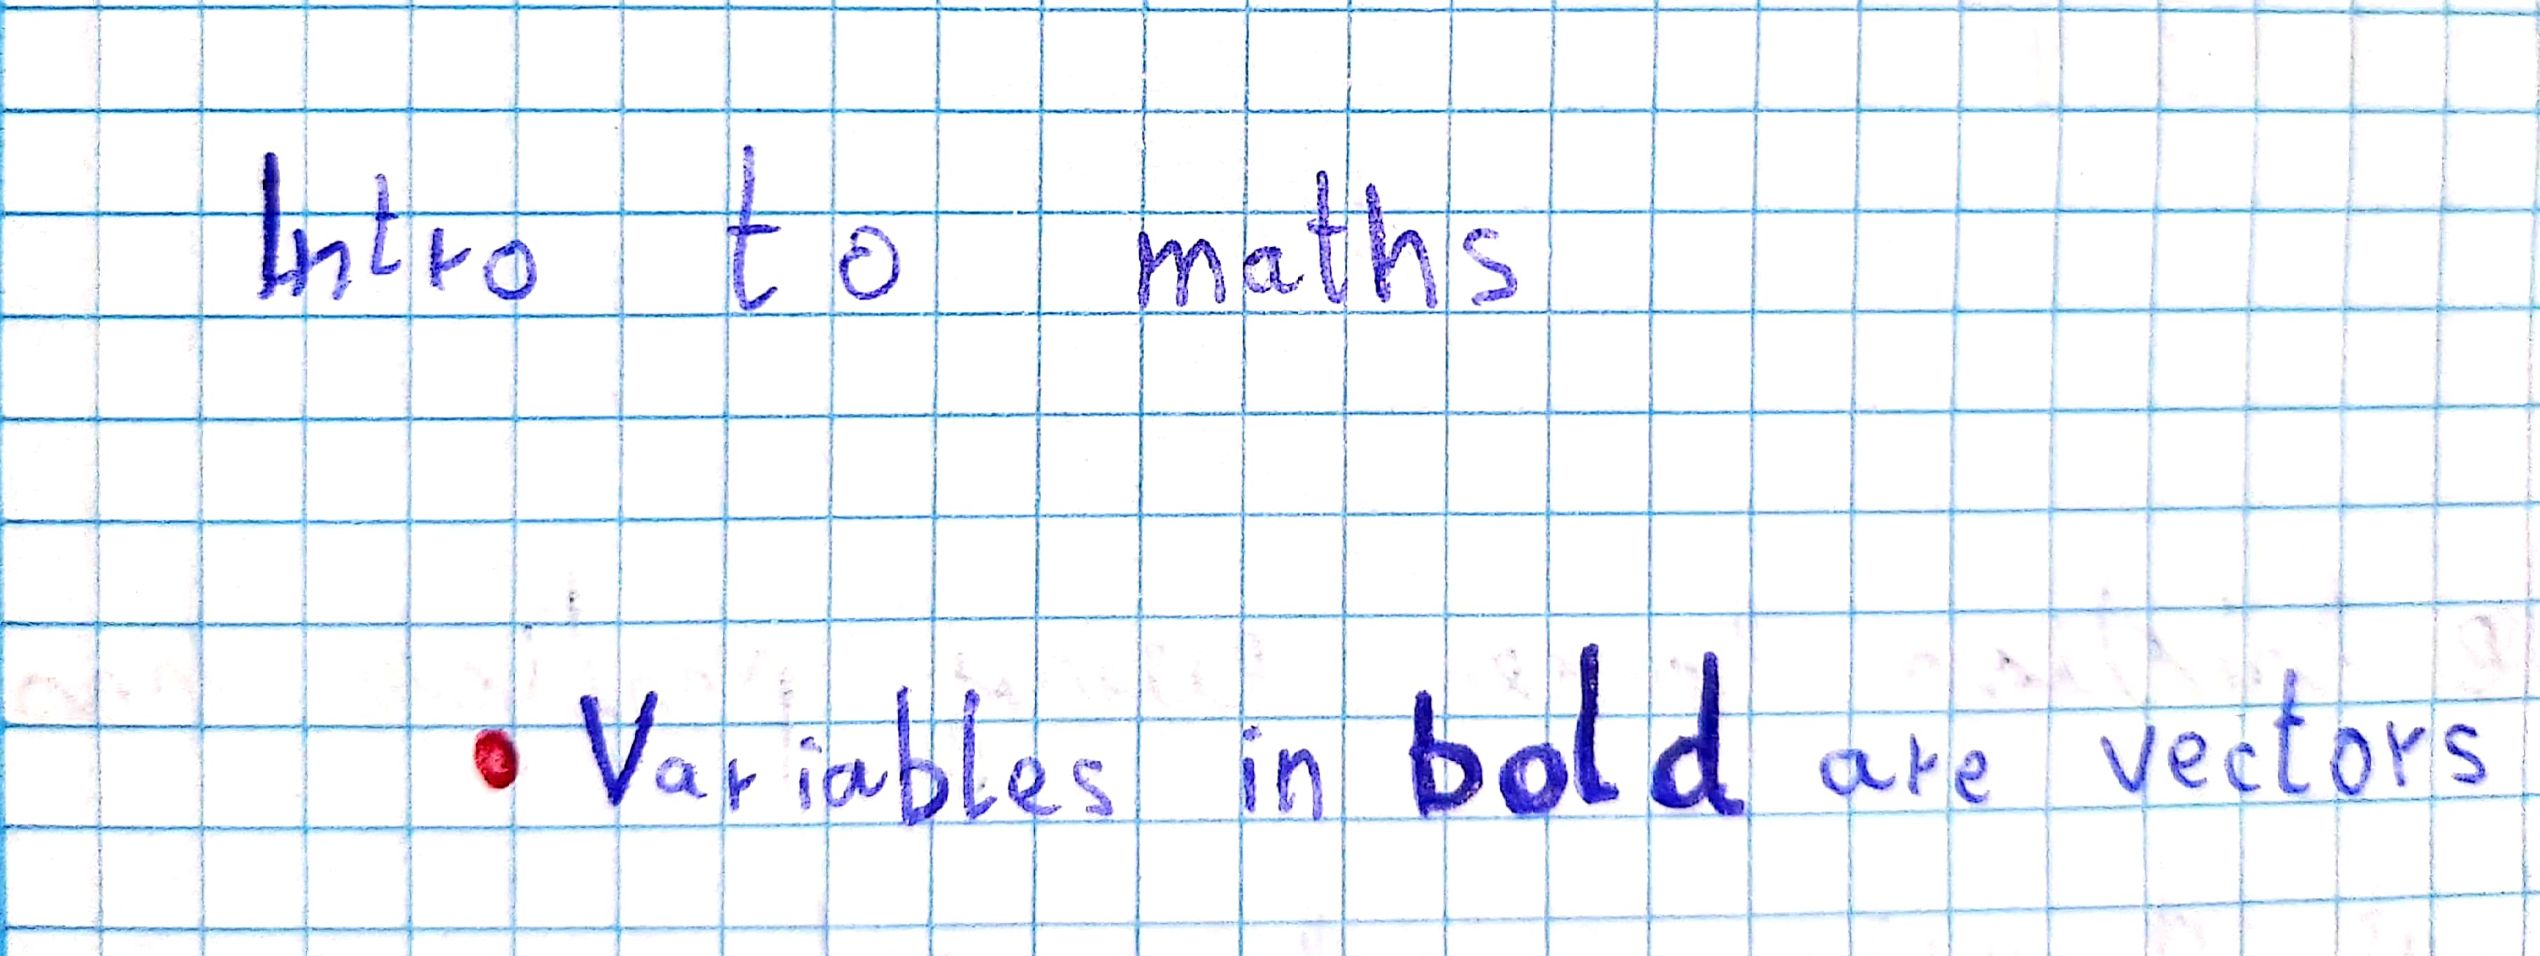 Intro to maths
• Variables in bold are vectors